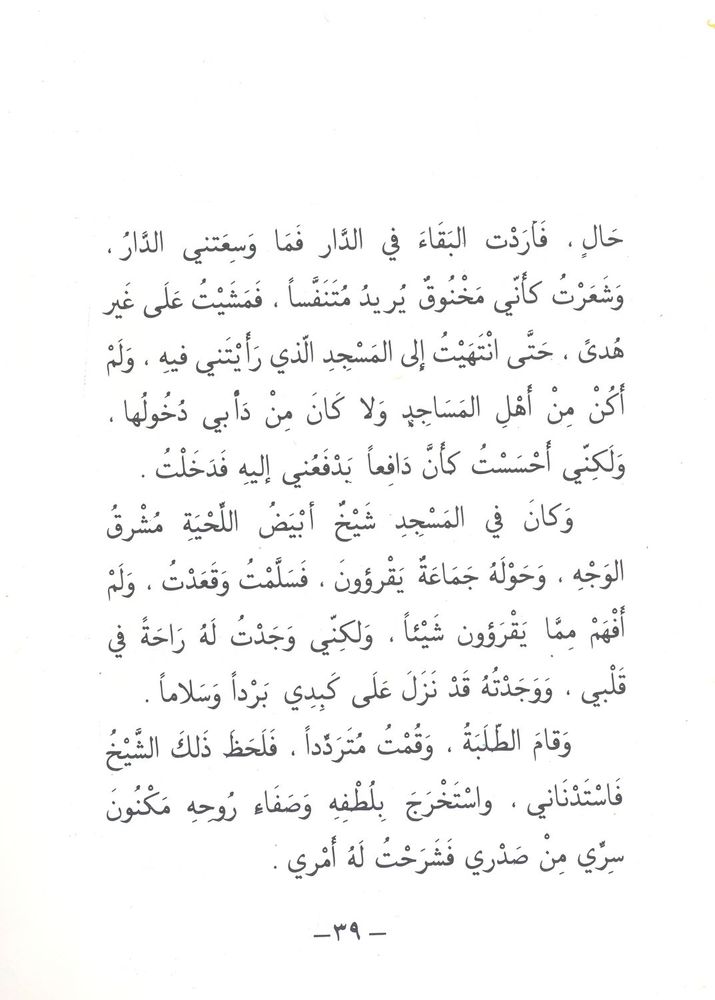 حَالٍ ، فَأَرَدْت البَقَاءَ في الدَّار فَمَا وَسِعَتني الدَّارُ ،
وَشَعَرْتُ كأَنّي مَخْنُوقٌ يُريدُ مُتَنَفَّساً ، فَمَشَيْتُ عَلى غَير
هُدىً ، حَتَّى انْتَهَيْتُ إلى المَسْجِدِ الّذي رَأَيْتَني فيهِ ، وَلَمْ
أَكُنْ مِنْ أَهْلِ المَسَاجِدِ وَلا كَانَ مِنْ دَأبي دُخُولُها ،
وَلَكِنّي أَحْسَسْتُ كأَنَّ دَافِعاً يَدْفَعُني إليهِ فَدَخَلْتُ .
وَكانَ في المَسْجِدِ شَيْخٌ أبْيَضُ اللّحْيَةِ مُشْرقُ
الوَجْهِ ، وَحَوْلَهُ جَمَاعَةٌ يَقْرؤونَ ، فَسَلَّمْتُ وَقَعَدْتُ ، وَلَمْ
أَفْهَمْ مِمَّا يَقْرَؤون شَيْئاً ، وَلكِنّي وَجَدْتُ لَهُ رَاحَةً في
قَلْبي ، وَوَجَدْتُهُ قَدْ نَزَلَ عَلَى كَبِدِي بَرْداً وَسَلاماً .
وَقامَ الطّلَبَةُ ، وَقُمْتُ مُتَرَدِّداً ، فَلَحَظَ ذَلكَ الشَّيْخُ
فَاسْتَدْنَاني ، واسْتَخْرَجَ بِلُطْفِهِ وَصَفَاءِ رُوحِهِ مَكْنُونَ
سِرِّي مِنْ صَدْري فَشَرَحْتُ لَهُ أَمْري .
– ٣٩ –